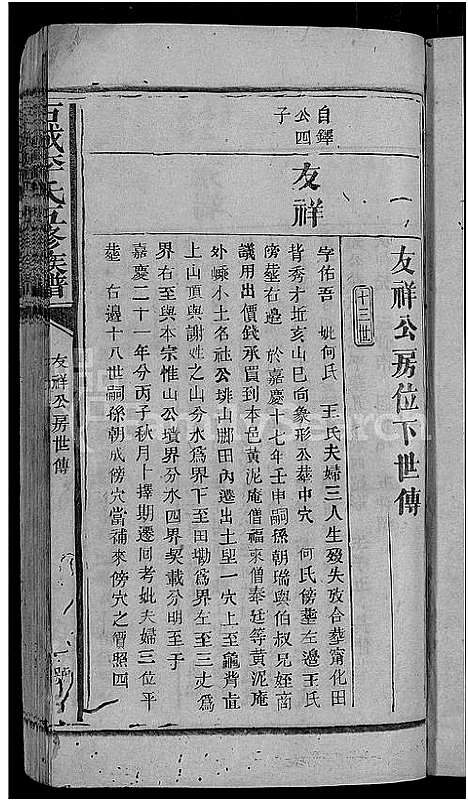 一
友祥公房位下世傳
十三世
自鐸
公四
子
友祥
字佑吾 妣何氏 王氏夫婦三人生殁失攷合𦵏甯化田
背秀才坵亥山巳向象形公𦵏中穴 何氏傍𦵏左邊王氏
傍𦵏右邊 於嘉慶十七年壬申嗣孫朝瑞與伯叔兄姪商
議用出價錢承買到本邑黃泥庵僧福來僧泰廷等黃泥庵
外 小土名社公 山脚田內遷出土 一穴上至龜背直
上山頂與謝姓之山分水爲界下至田勘爲界左至三丈爲
界右至與本宗惟山公墳界分水四界契載分明至于
嘉慶二十一年分丙子秋月十擇期遷回考妣夫婦三位平
𦵏 右邊十八世嗣孫朝成傍穴當補來傍穴之價照四
石城李氏五修族譜
友祥公房世傳